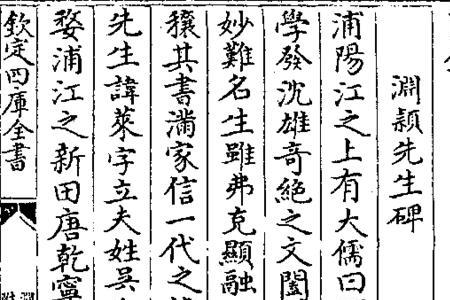 淵穎先生碑
浦陽江之上有大儒曰
學發沈雄奇絶之文闔
妙難名生雖弗克顯融
穰其書滿家信一代之
先生諱萊字立夫姓吳
婺浦江之新田唐乾寧
欽定四庫全書